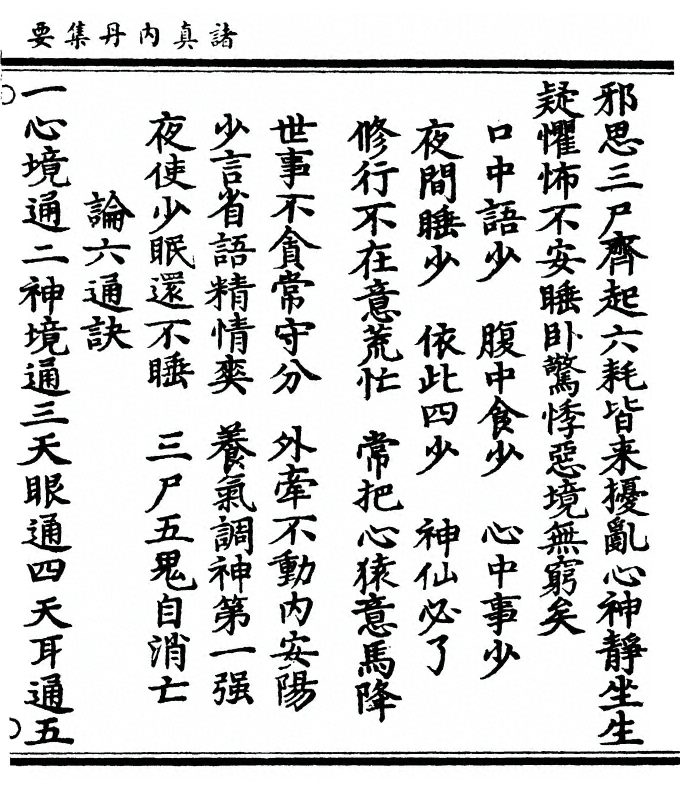 諸真內丹集要
邪思三尸齊起六耗皆来擾亂心神靜坐生
疑懼怖不安睡卧驚悸惡境無窮矣
口中語少 腹中食少 心中事少
夜間睡少 依此四少 神仙必了
修行不在意荒忙 常把心猿意馬降
世事不貪常守分 外牽不動內安陽
少言省語精情爽 養氣調神第一强
夜使少眠還不睡 三尸五鬼自消亡
論六通訣
一心境通二神境通三天眼通四天耳通五